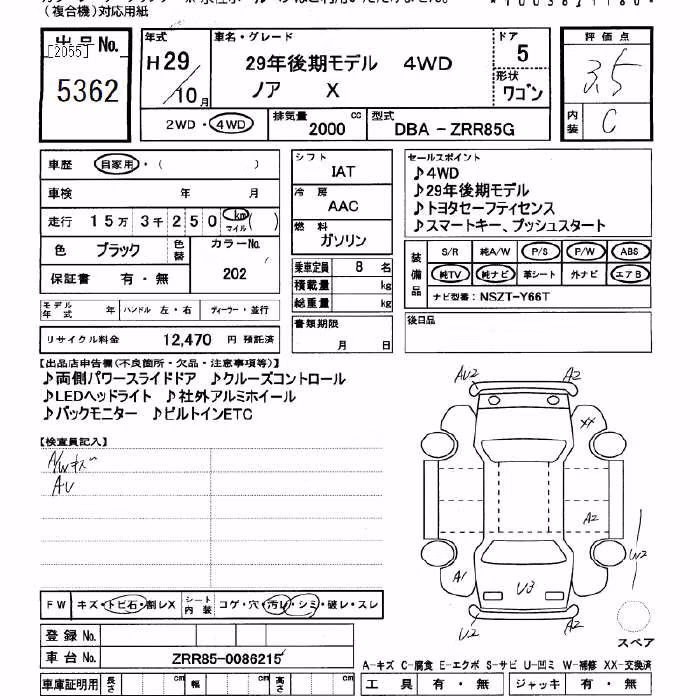 (複合機)対応用紙
出品No.
[2055]
5362
年式
H 29 / 10 月
車名・グレード
29年後期モデル 4WD
ノア X
ドア
5
形状
ワゴン
評価点
3.5
内装
C
2WD・4WD
排気量 2000 cc
型式 DBA - ZRR85G
車歴 自家用・( )
車検 年 月
走行 15万3千250 km マイル ( )
色 ブラック 色替
カラーNo.
202
保証書 有・無
モデル年式 年 ハンドル 左・右 ディーラー・並行
リサイクル料金 12,470 円 預託済
シフト
IAT
冷房
AAC
燃料
ガソリン
乗車定員 8 名
積載量 kg
総重量 kg
書類期限
月 日
セールスポイント
♪4WD
♪29年後期モデル
♪トヨタセーフティセンス
♪スマートキー、プッシュスタート
装備品
S/R 純A/W P/S P/W ABS
純TV 純ナビ 革シート 外ナビ エアB
ナビ型番: NSZT-Y66T
後日品
【出品店申告欄(不良箇所・欠品・注意事項等)】
♪両側パワースライドドア ♪クルーズコントロール
♪LEDヘッドライト ♪社外アルミホイール
♪バックモニター ♪ビルトインETC
【検査員記入】
A/Wキズ
AU
AU2
A2
XX
A2
A2
W2
A1
U3
U2
A2
スペア
FW キズ・トビ石・割レX
シート内装 コゲ・穴・汚レ・シミ・破レ・スレ
登録No.
車台No. ZRR85-0086215
A-キズ C-腐食 E-エクボ S-サビ U-凹ミ W-補修 XX-交換済
車庫証明用 長さ cm 幅 cm 高さ cm
工具 有・無 ジャッキ 有・無